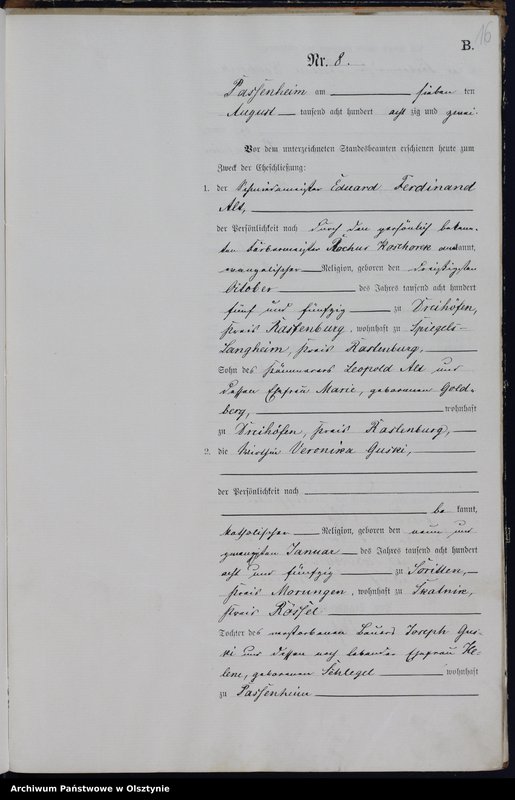 16
B.
Nr. 8.
Passenheim am sieben ten
August tausend acht hundert acht zig und zwei.
Vor dem unterzeichneten Standesbeamten erschienen heute zum
Zweck der Eheschließung:
1. der Schmiedemeister Eduard Ferdinand
Alt,
der Persönlichkeit nach durch den persönlich bekann-
ten Färbermeister Rochus Koschorek anerkannt,
evangelischer Religion, geboren den dreißigsten
Oktober des Jahres tausend acht hundert
fünf und fünfzig zu Dreihöfen,
Kreis Rastenburg, wohnhaft zu Spiegels-
Langheim, Kreis Rastenburg,
Sohn des Kämmerers Leopold Alt und
dessen Ehefrau Marie, geborenen Gold-
berg, wohnhaft
zu Dreihöfen, Kreis Rastenburg,
2. die Wirthin Veronika Guski,
der Persönlichkeit nach
be kannt,
katholischer Religion, geboren den neun und
zwanzigsten Januar des Jahres tausend acht hundert
acht und fünfzig zu Soritten,
Kreis Morungen, wohnhaft zu Skatnik,
Kreis Rössel
Tochter des verstorbenen Bauers Joseph Gus-
ki und dessen noch lebender Ehefrau He-
lene, geborenen Schlegel wohnhaft
zu Passenheim
Archiwum Państwowe w Olsztynie